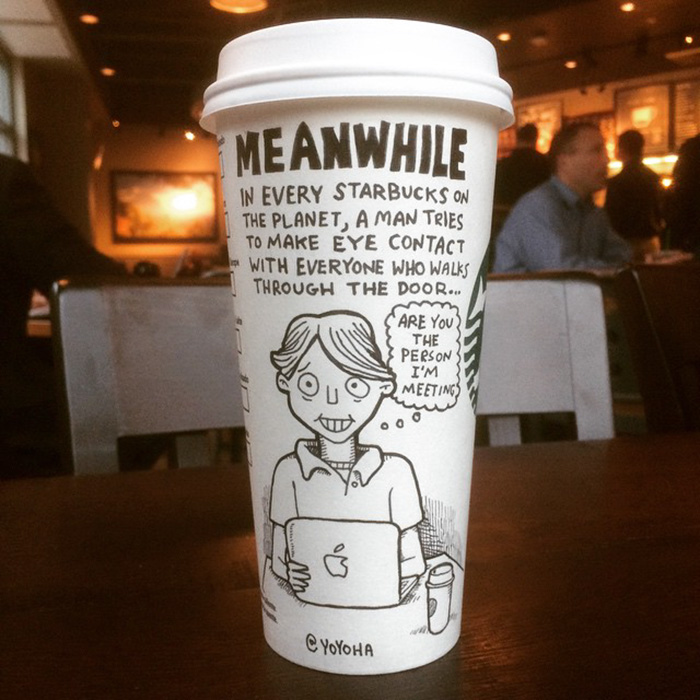 MEANWHILE
IN EVERY STARBUCKS ON
THE PLANET, A MAN TRIES
TO MAKE EYE CONTACT
WITH EVERYONE WHO WALKS
THROUGH THE DOOR...
ARE YOU
THE
PERSON
I'M
MEETING
@YOYOHA